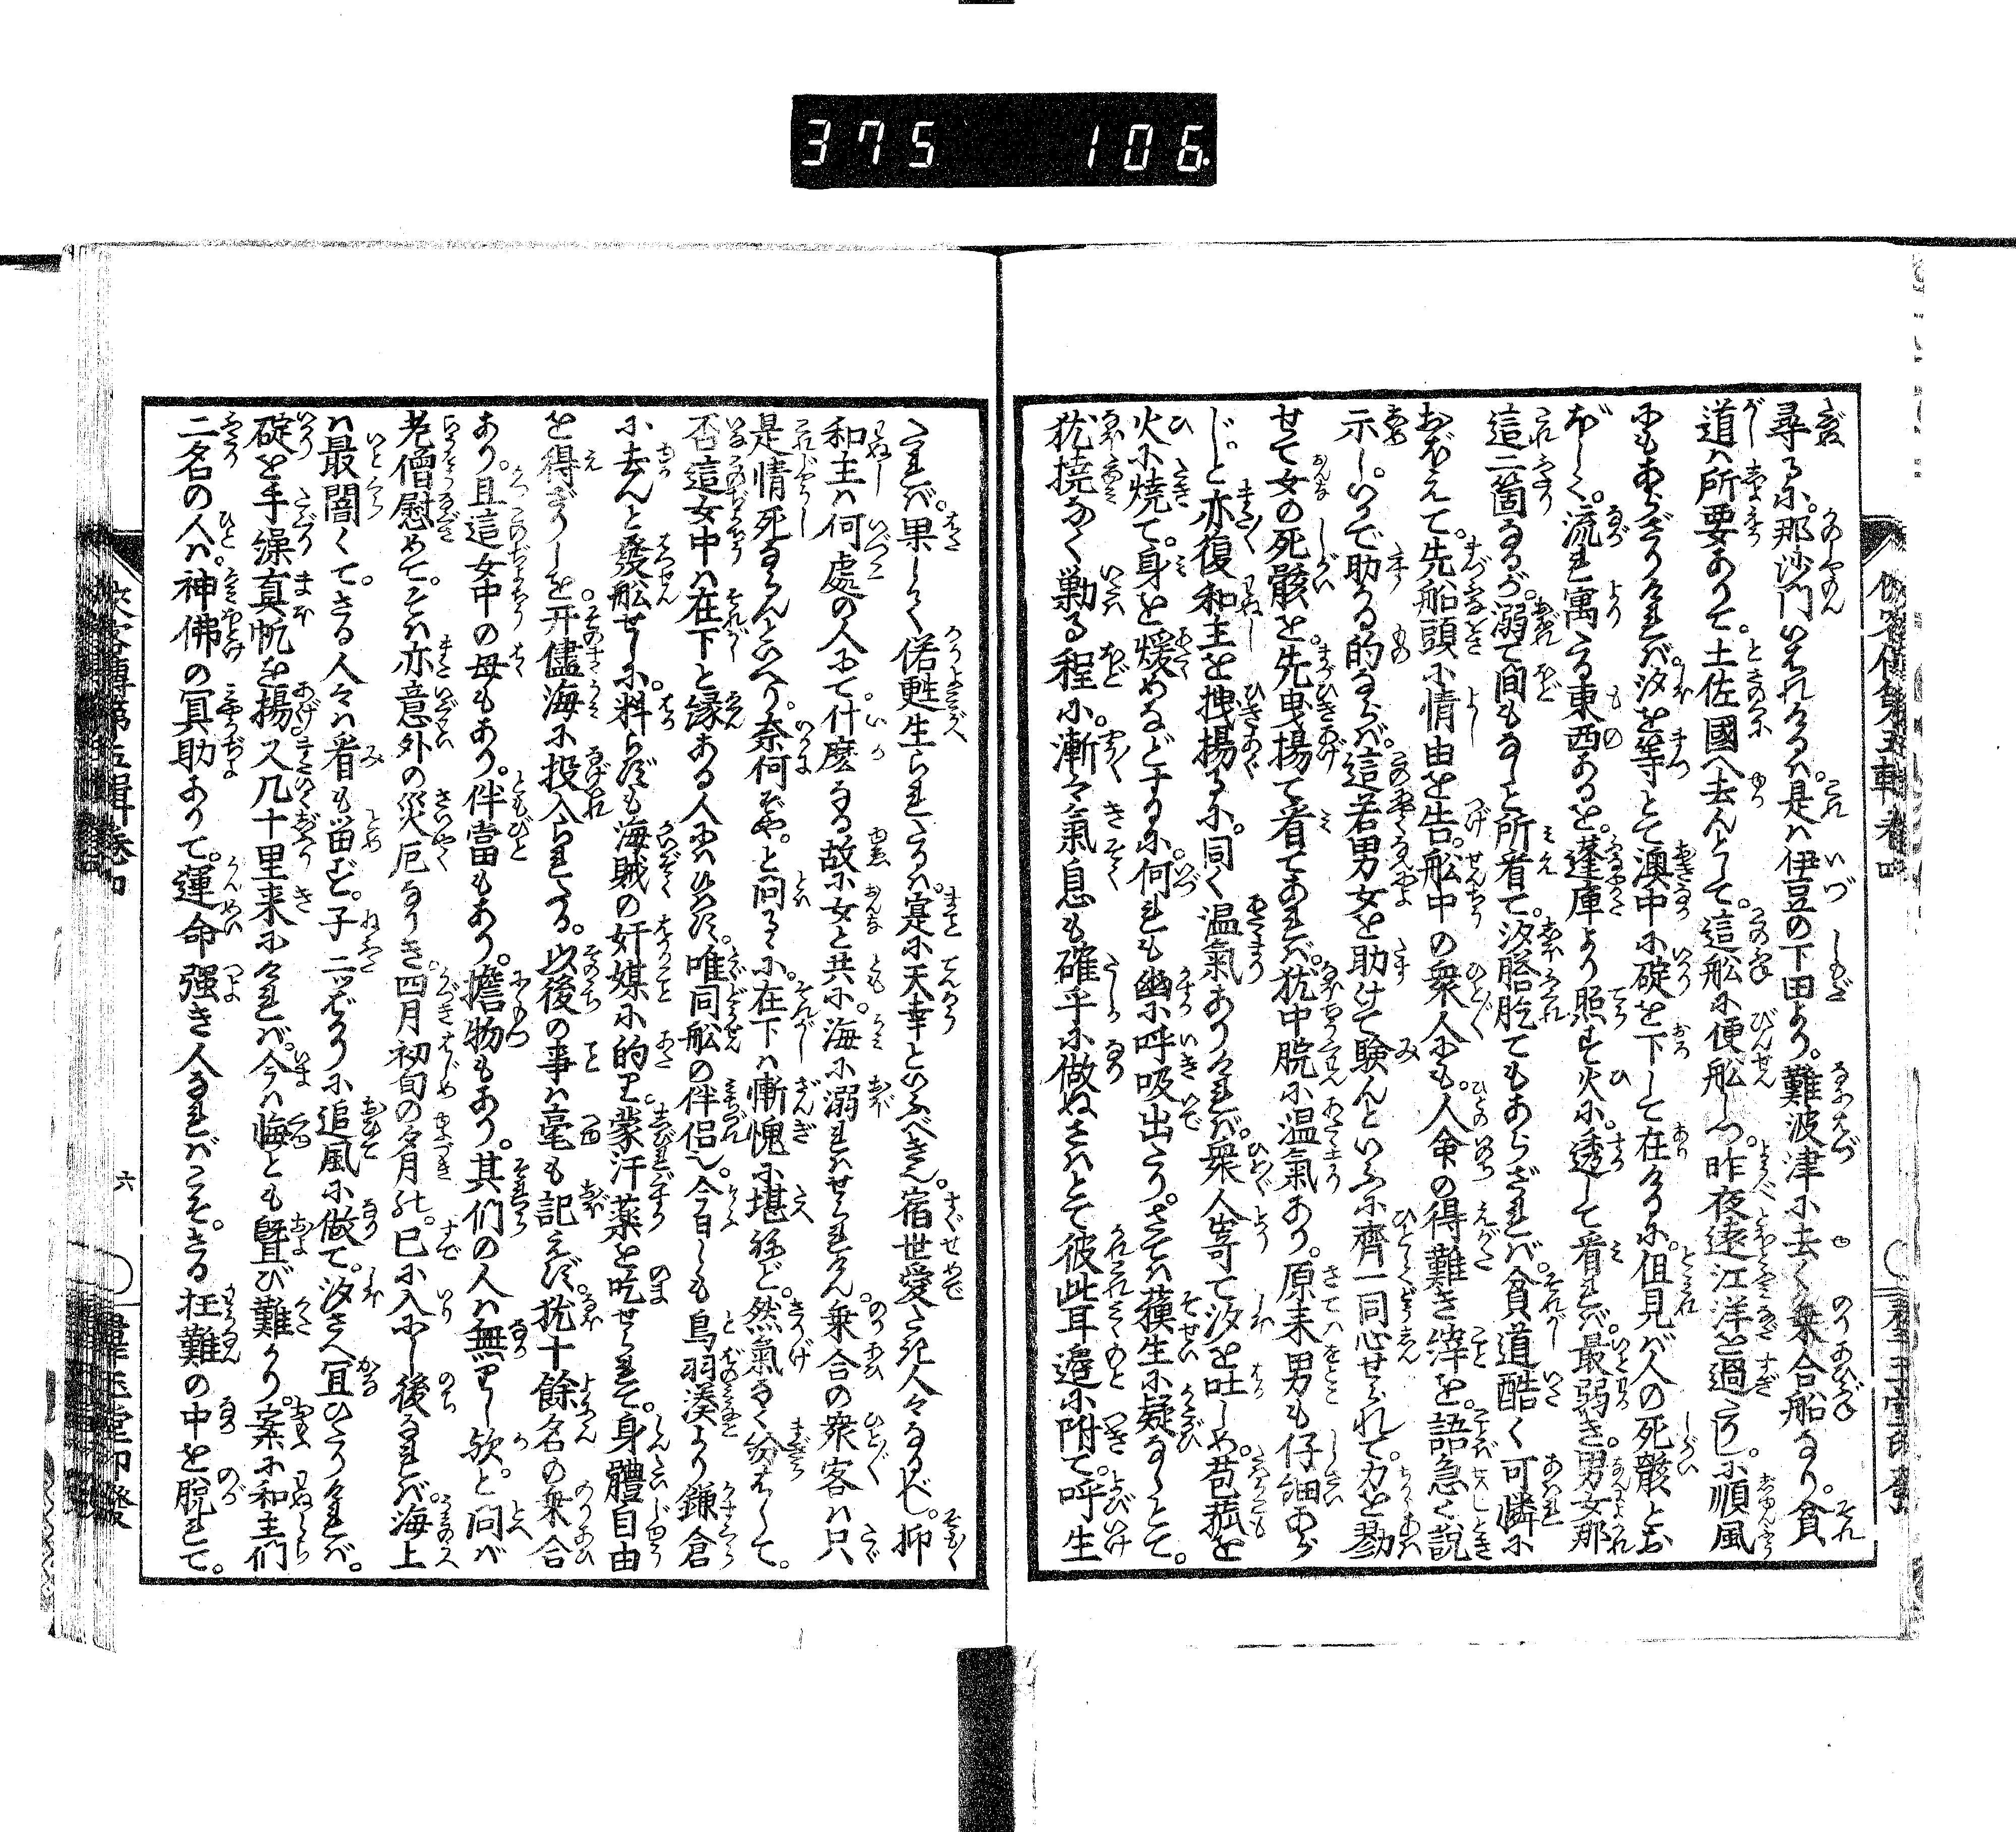 375 106.
尋るに。那沙門いはれけるは。是は伊豆の下田より。難波津に去く乗合船なり。貧
道は所要ありて。土佐國へ去んとて。這舩に便舩しつ。昨夜遠江洋を過りしに順風
にもあらざりければ汐を等とて澳中に碇を下して在けるに。但見ば人の死骸とお
ぼしく。流れ寓る東西あるを。蓬庫より照す火に。透して看れば。最弱き。男女那
這二箇なるが。溺て間もなしと所看て。汐脹肐てもあらざれば。貧道酷く可憐に
おぼえて。先船頭に情由を告。舩中の衆人にも。人命の得難き縡を。語急く説
示し。いかで助る的ならば。這若男女を助けて験んといふに齊一同心せられて。力を勠
せて女の死骸を。先曳揚て看てあれば。犹中脘に温氣あり。原来男も仔細あら
じ。と亦復和主を拽揚るに。同く温氣ありければ。衆人寄て汐を吐しめ。苞菰を
火に焼て。身を煖めなどするに。何れも幽に呼吸出たり。さては蘓生に疑なしとて。
犹撓なく勦る程に。漸々氣息も確乎に做ぬさはとて彼此耳邉に附て。呼生
たれば。果して偌甦生られたるは。寔に天幸といふべきに。宿世愛たき人々なるべし。抑
和主は何處の人にて。什麽なる故に女と共に。海に溺れはせられけん。乗合の衆客は只
是情死ならんといへり。奈何ぞや。と問るゝに。在下は慚愧に堪ねど。然氣なく紛はして。
否這女中は在下と縁ある人にはあらず。唯同舩の伴侶也。今日しも鳥羽湊より鎌倉
に去んと發舩せしに。料らずも海賊の奸媒に的り。蒙汗薬を吃せられて。身體自由
を得ざりしを。开儘海に投入られたる。以後の事は毫も記えず。犹十餘名の乗合
あり。且這女中の母もあり。伴當もあり。擔物もあり。其們の人は無りし歟。と問ば
老僧慰めて。そは亦意外の災厄なりき。四月初旬の夕月夜。已に入にし後なれば。海上
は最闇くて。さる人々は看も畄ず。子二ッばかりに追風に做て。汐さへ宜ひたりければ。
碇を手繰真帆を揚。又几十里来にければ。今は悔とも曁び難かり。案に和主們
二名の人は。神佛の冥助ありて。運命强き人なればこそ。さる抂難の中を脱れて。
六